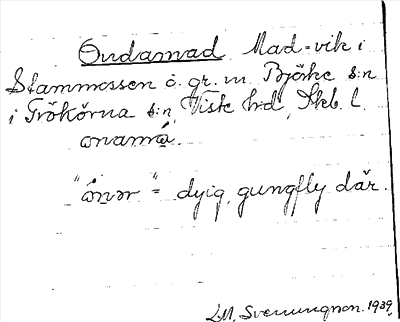 Ondamad Mad-vik i
Stammossen ö. gr. m. Björke s:n
i Trökörna s:n, Viste hd, Skb. l.
ɷnamá.
"ɷ́nər" = dyig, gungfly där.
L.M. Svenungsson. 1939.